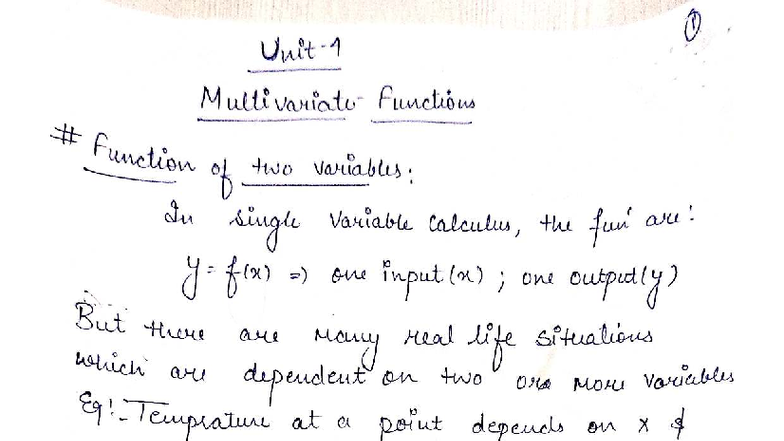 ①
Unit-1
Multivariate Functions
# Function of two variables:
In single variable calculus, the funⁿ are:
y = f(x) => one input (x) ; one output (y)
But there are many real life situations
which are dependent on two or more variables
Eg:- Temprature at a point depends on x &